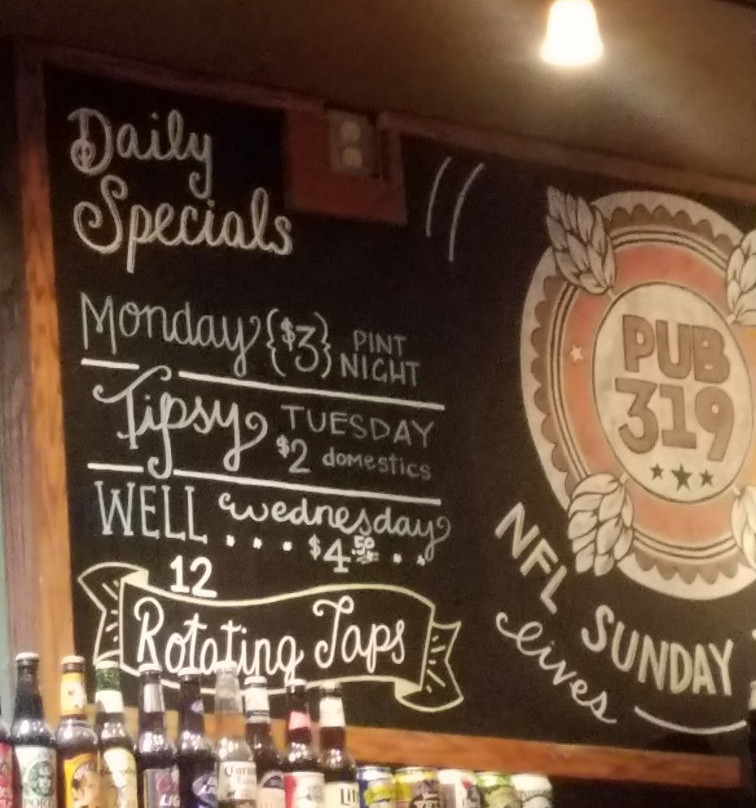 Daily
Specials
Monday {$3} PINT
NIGHT
Tipsy TUESDAY
$2 domestics
WELL wednesday
$4.50
12
Rotating Taps
PUB
319
NFL SUNDAY
lives